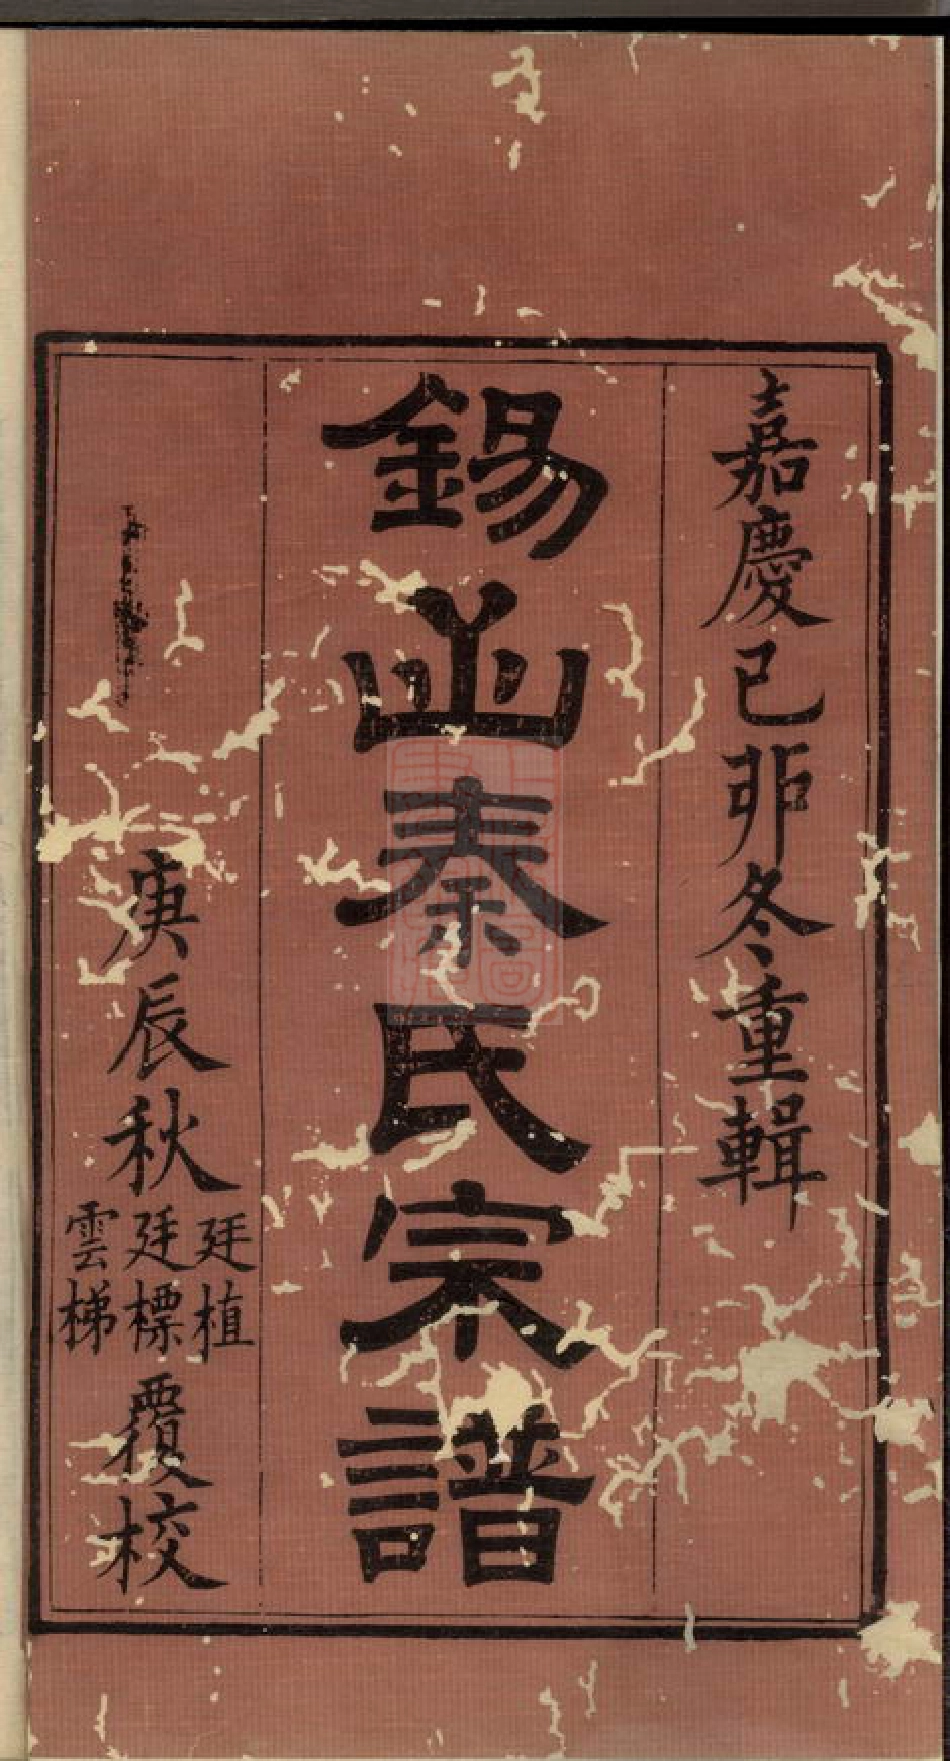 嘉慶己卯冬重輯
錫山秦氏宗譜
庚辰秋
廷植
廷標
雲梯
覆校